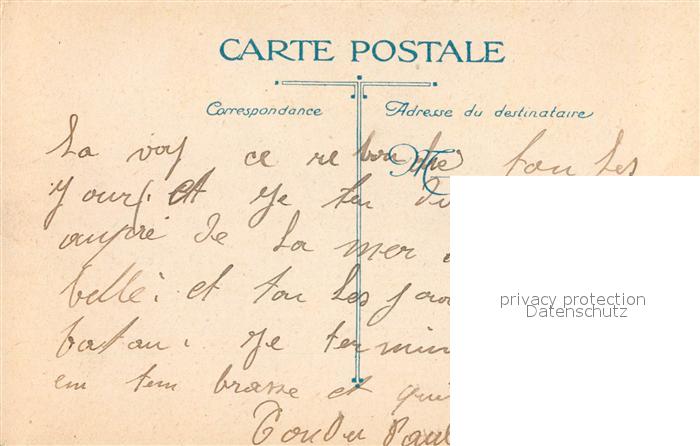 CARTE POSTALE
Correspondance Adresse du destinataire
La voy ce re tou les
jours. et je ten di
aupré de La mer
belle. et tou les jou
batau. je termin
em tem brasse et qui
Paul
privacy protection
Datenschutz